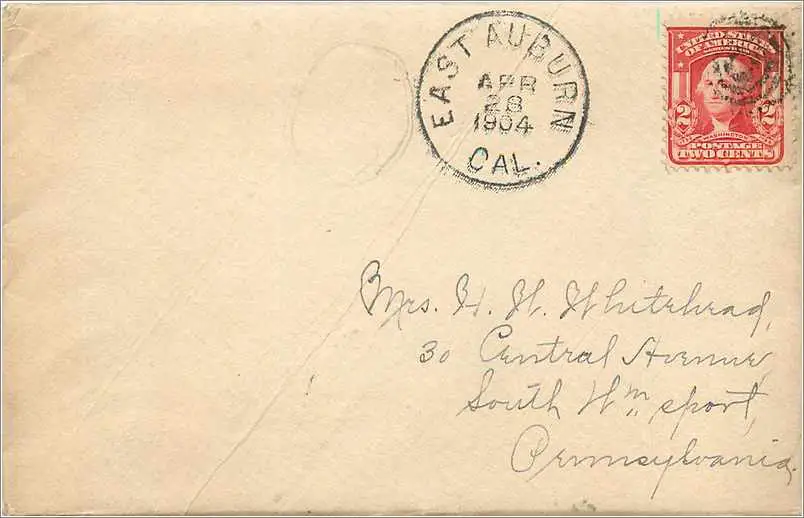 EAST AUBURN
APR
28
1904
CAL.
UNITED STATES
OF AMERICA
2 2
WASHINGTON
POSTAGE
TWO CENTS
Mrs. H. W. Whitehead,
30 Central Avenue,
South Wm sport,
Pennsylvania.